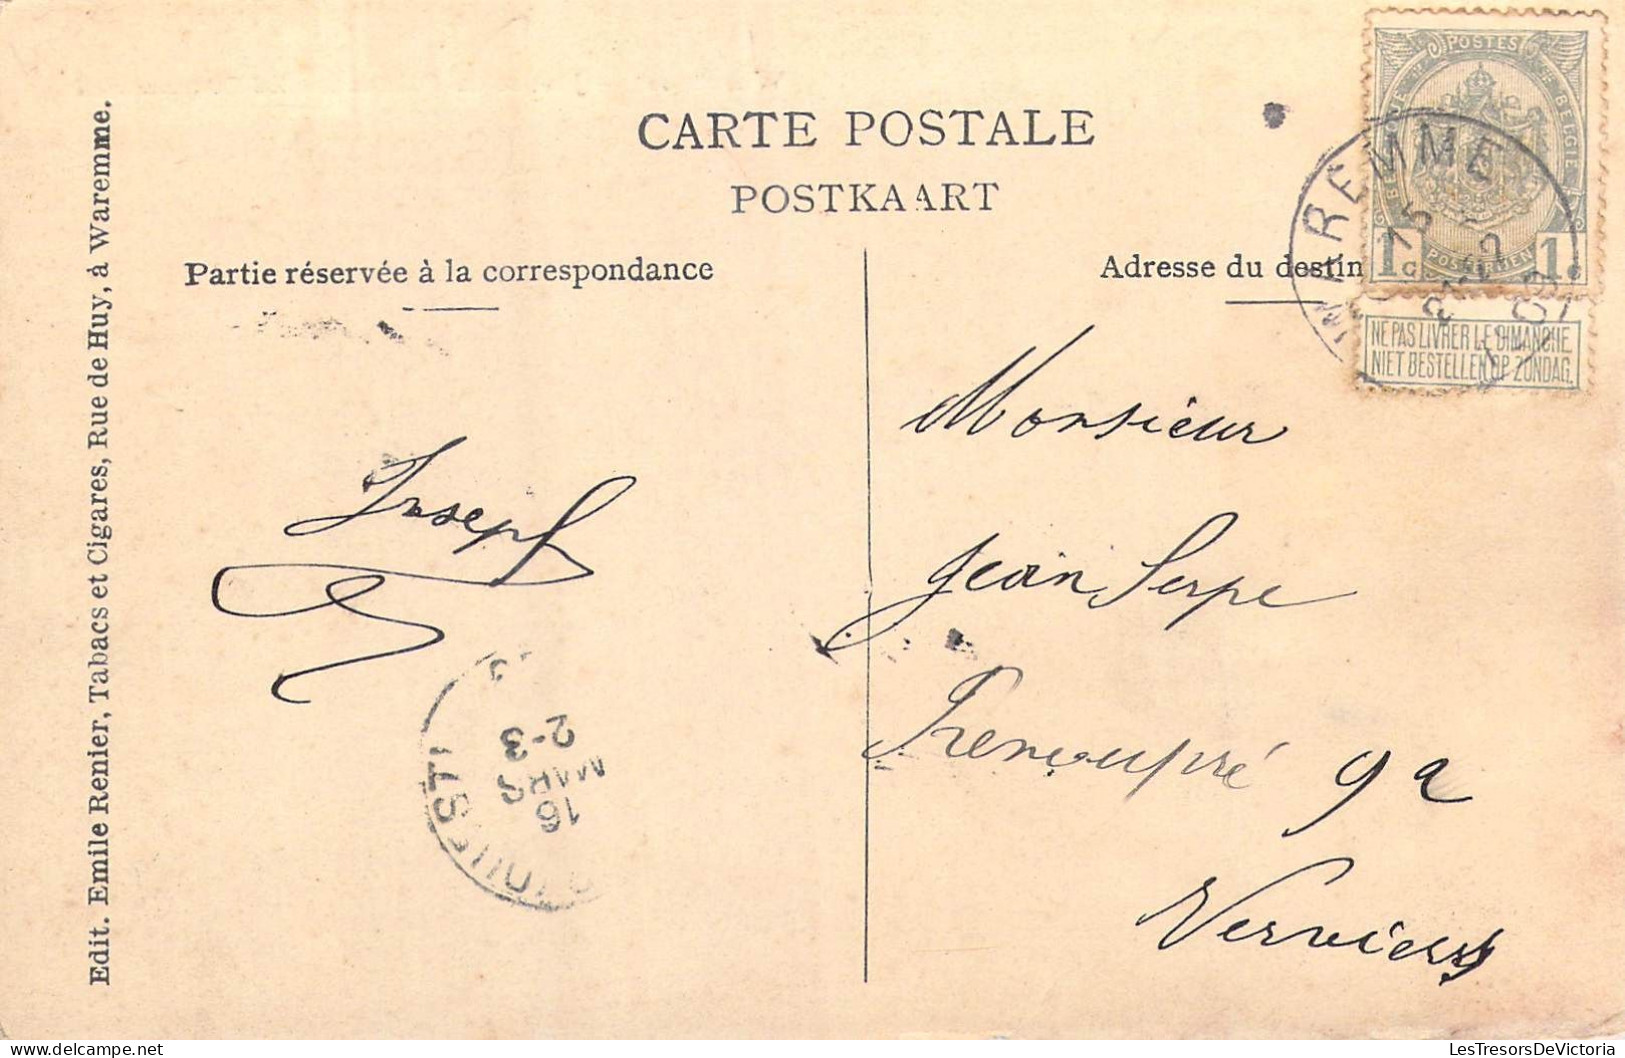 CARTE POSTALE
POSTKAART
Partie réservée à la correspondance
Adresse du destin
Edit. Emile Renier, Tabacs et Cigares, Rue de Huy, à Waremme.
POSTES
BELGIE
1c
POSTERIJEN
1c
NE PAS LIVRER LE DIMANCHE
NIET BESTELLEN OP ZONDAG.
REMME
Joseph
16
MARS
2-3
Monsieur
Jean Serpe
9a
Verviers
LesTresorsDeVictoria